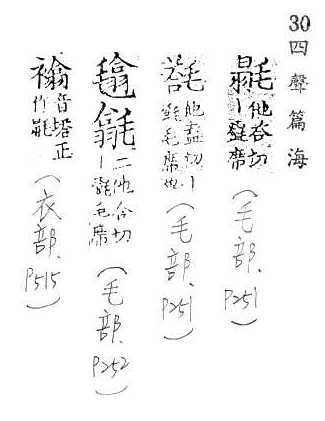 30四聲篇海
毾他合切丨㲪席(毛部、P251)
他盍切丨㲪毛席也(毛部、P251)
二他合切丨㲪毛席(毛部、P252)
音塔正作毾(衣部、P515)